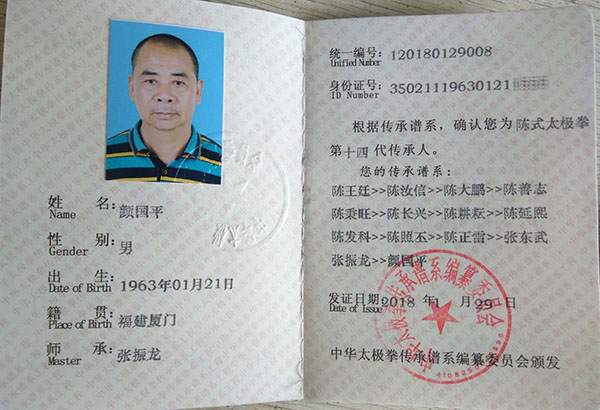 姓 名:颜国平
Name
性 别:男
Gender
出 生:1963年01月21日
Date of Birth
籍 贯:福建厦门
Place of Birth
师 承:张振龙
Master
统一编号:120180129008
Unified Number
身份证号:35021119630121
ID Number
根据传承谱系,确认您为陈式太极拳
第十四代传承人。
您的传承谱系:
陈王廷>>陈汝信>>陈大鹏>>陈善志
陈秉旺>>陈长兴>>陈耕耘>>陈延熙
陈发科>>陈照丕>>陈正雷>>张东武
张振龙>>颜国平
发证日期:2018年1月29日
Date of Issue
中华太极拳传承谱系编纂委员会
中华太极拳传承谱系编纂委员会颁发